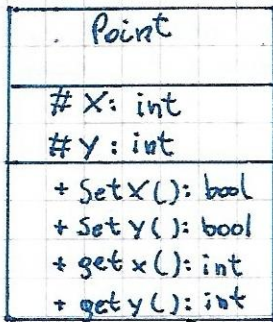 Point
# X: int
# Y: int
+ SetX(): bool
+ Set y(): bool
+ get x(): int
+ get y(): int